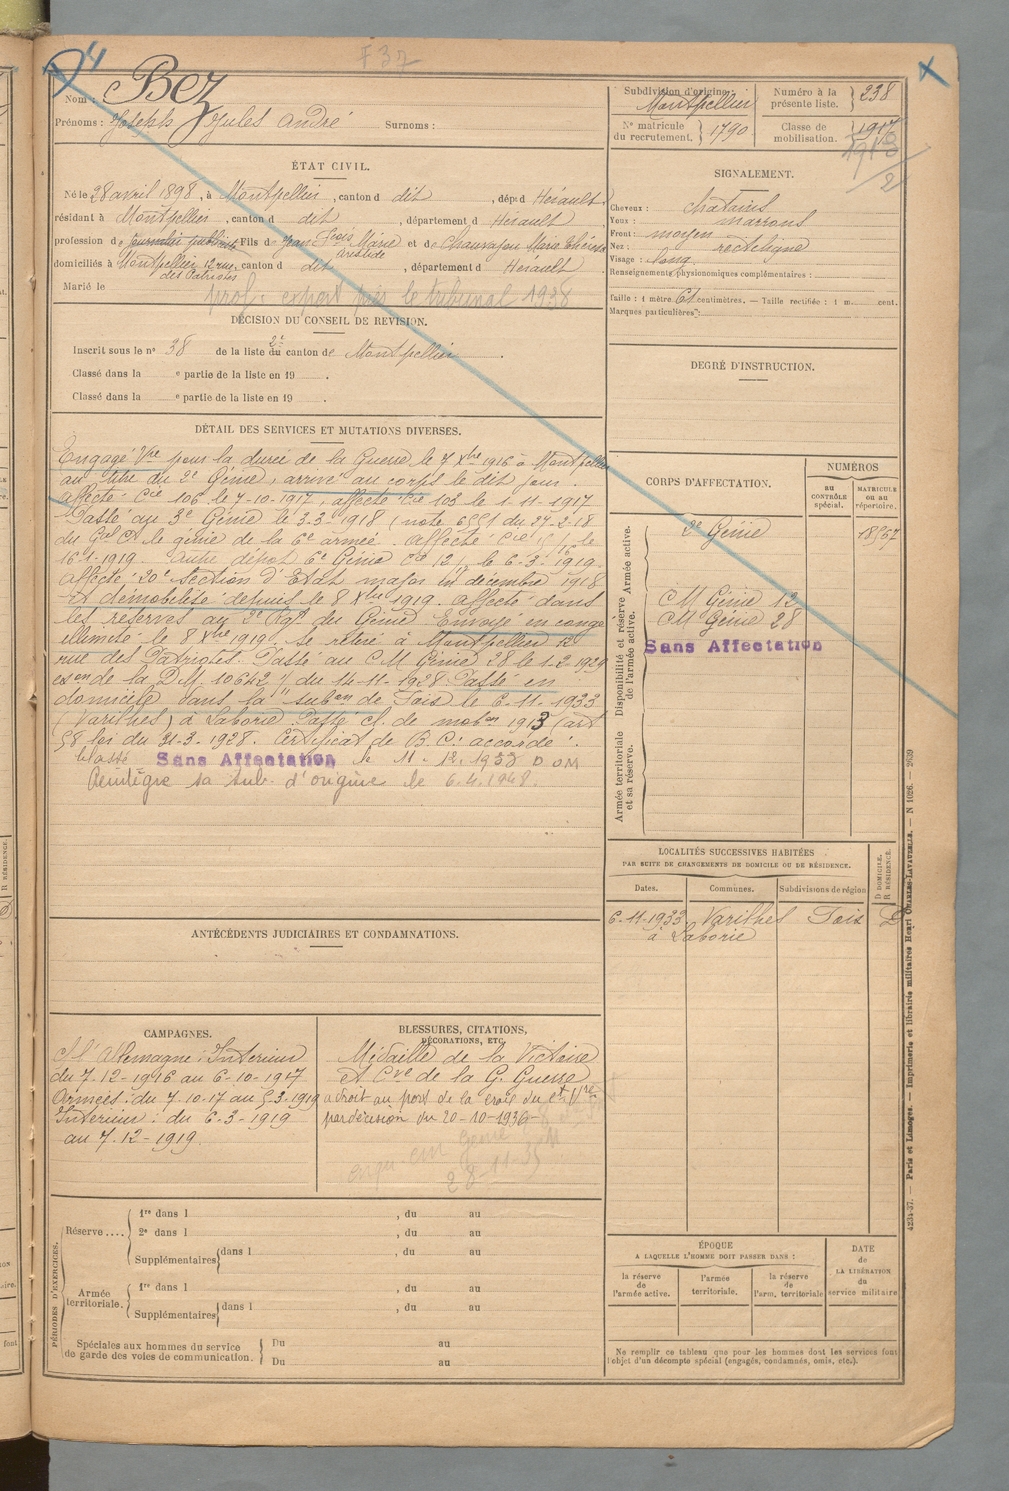 F 37
Nom : Bez
Prénoms : Joseph Jules André Surnoms :
ÉTAT CIVIL.
Né le 28 avril 1898, à Montpellier, canton d dit, dép.d Hérault,
résidant à Montpellier, canton d dit, département d Hérault
profession de Fils de Jean Frçois Marie et de Chauvafou Marie Thérèse
Aristide
domiciliés à Montpellier 12 rue, canton d dit, département d Hérault
des Patriotes
Marié le
prof. expert près le tribunal 1938
DÉCISION DU CONSEIL DE RÉVISION.
Inscrit sous le n° 38 de la liste du 2e canton de Montpellier.
Classé dans la e partie de la liste en 19 .
Classé dans la e partie de la liste en 19 .
DÉTAIL DES SERVICES ET MUTATIONS DIVERSES.
Engagé Vre pour la durée de la Guerre le 7 Xbre 1916 à Montpellier
au titre du 2e Génie, arrivé au corps le dit jour.
affecté Cie 106 le 7-10-1917, affecté Cie 103 le 1-11-1917
Passé au 3e Génie le 3-3-1918 (note 6551 du 27-2-18
du Gal Ct le génie de la 6e armée. affecté Cie le
16-1-1919. dépôt 6e Génie Cie 12 le 6-3-1919.
affecté 20e section d'Etat major en décembre 1918
démobilisé depuis le 8 Xbre 1919. affecté dans
les réserves au 2e Rgt du Génie Envoyé en congé
illimité le 8 Xbre 1919. Se retire à Montpellier 12
rue des Patriotes. Passé au CM Génie 28 le 1-2-1929
exon de la D.M. 10642 du 14-11-1928 Passé en
domicile dans la subon de Foix le 6-11-1933
(Varilhes) à Laborie Passé cl. de mobon 1913 (art
58 loi du 31-3-1928. Certificat de B.C. accordé.
Classé Sans Affectation le 11-12-1933 D OM
Réintègre sa sub. d'origine le 6.4.1948.
ANTÉCÉDENTS JUDICIAIRES ET CONDAMNATIONS.
CAMPAGNES.
C l'Allemagne : Intérieur
du 7-12-1916 au 6-10-1917
Armées : du 7.10.17 au 5.3.1919
Intérieur : du 6-3-1919
au 7-12-1919.
BLESSURES, CITATIONS,
DÉCORATIONS, ETC.
Médaille de la Victoire
et Cve de la G. Guerre
a droit au port de la Croix du Ct Vre
par décision du 20-10-1936
28-11-35
PÉRIODES D'EXERCICES.
Réserve....
1re dans l , du au
2e dans l , du au
Supplémentaires dans l , du au
Armée territoriale.
1re dans l , du au
Supplémentaires dans l , du au
Spéciales aux hommes du service
de garde des voies de communication.
Du au
Du au
Subdivision d'origine :
Montpellier
Numéro à la
présente liste. 238
N° matricule
du recrutement. 1790
Classe de
mobilisation. 1917
1913
2
SIGNALEMENT.
Cheveux : chatains
Yeux : marrons
Front : moyen
Nez : rectiligne
Visage : long
Renseignements physionomiques complémentaires :
Taille : 1 mètre 61 centimètres. — Taille rectifiée : 1 m. cent.
Marques particulières :
DEGRÉ D'INSTRUCTION.
CORPS D'AFFECTATION.
NUMÉROS
AU CONTRÔLE spécial.
MATRICULE ou au répertoire.
Armée active.
2e Génie
Disponibilité et réserve
de l'armée active.
CM Génie 12
CM Génie 28
Sans Affectation
Armée territoriale
et sa réserve.
LOCALITÉS SUCCESSIVES HABITÉES
PAR SUITE DE CHANGEMENTS DE DOMICILE OU DE RÉSIDENCE.
Dates. Communes. Subdivisions de région
D DOMICILE.
R RÉSIDENCE.
6-11-1933 Varilhes Foix D
à Laborie
ÉPOQUE
A LAQUELLE L'HOMME DOIT PASSER DANS :
la réserve de l'armée active.
l'armée territoriale.
la réserve de l'arm. territoriale
DATE
de
LA LIBÉRATION
du
service militaire
Ne remplir ce tableau que pour les hommes dont les services font
l'objet d'un décompte spécial (engagés, condamnés, omis, etc.).
4234-37. — Paris et Limoges. — Imprimerie et librairie militaires Henri CHARLES-LAVAUZELLE. — N 1026. — 2639